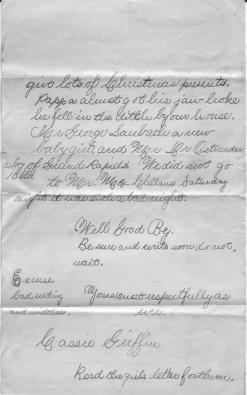 give lots of Christmas presents.
Pappa almost got his jaw broke
he fell in the little by our house.
Mr George has a new
baby girl and Mr Mr Ostrander
a boy of Grand Rapids. We did not go
to Mr. Saturday
night it was such a bad night.
Well Good By.
Be sure and write soon do not
wait.
Excuse
bad writing
and mistakes.
Yours most respectfully as
ever.
Cassie Griffin
Read this girls letter